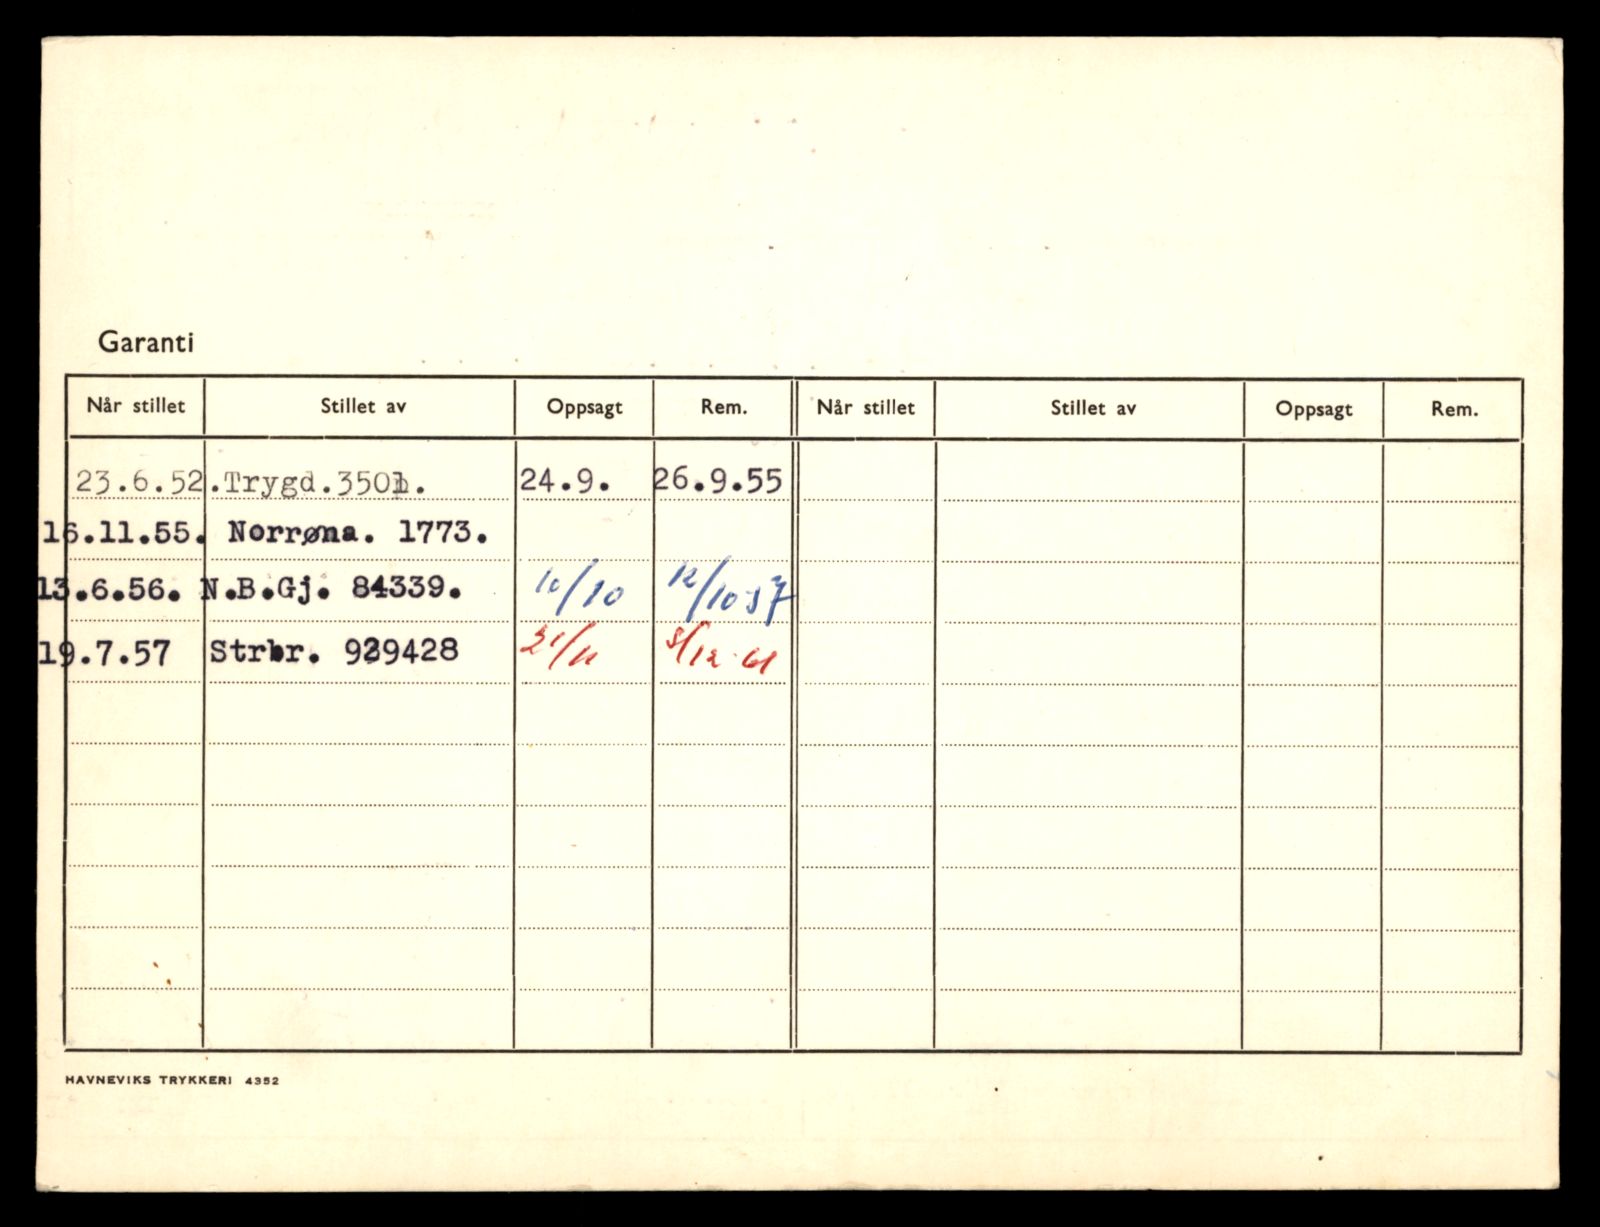 Garanti
Når stillet Stillet av Oppsagt Rem. Når stillet Stillet av Oppsagt Rem.
23.6.52.Trygd.3501. 24.9. 26.9.55
16.11.55. Norrøna. 1773.
13.6.56. N.B.Gj. 84339. 10/10 12/10 57
19.7.57 Strbr. 929428 21/11 5/12-61
HAVNEVIKS TRYKKERI 4352